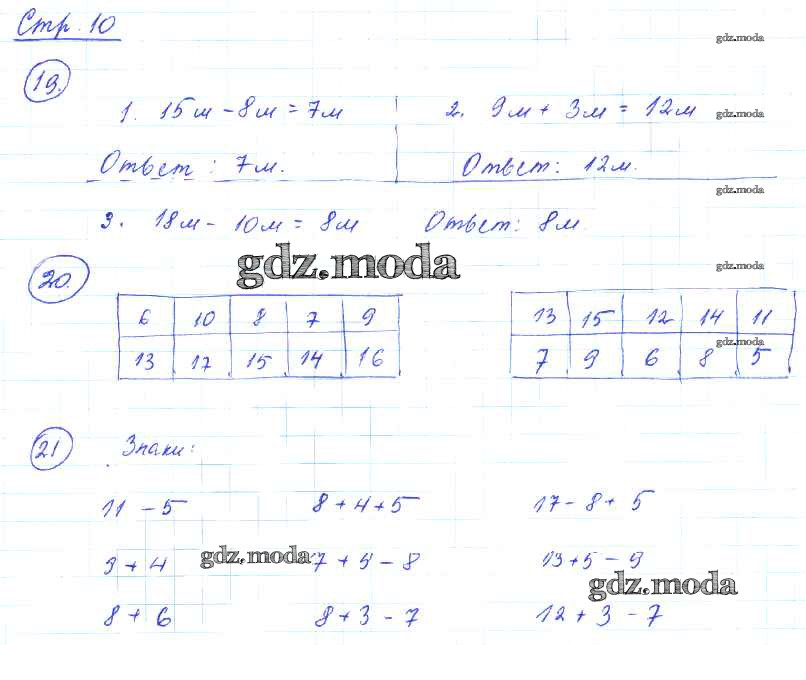 Стр. 10
gdz.moda
19.
1. 15м - 8м = 7м
2. 9м + 3м = 12м
gdz.moda
Ответ: 7м.
Ответ: 12м.
gdz.moda
3. 18м - 10м = 8м Ответ: 8м
gdz.moda
gdz.moda
20.
6 10 8 7 9
13 15 12 14 11
gdz.moda
13 17 15 14 16
7 9 6 8 5
21 Знаки:
11 - 5 8 + 4 + 5 17 - 8 + 5
9 + 4 gdz.moda 7 + 5 - 8 13 + 5 - 9
gdz.moda
8 + 6 8 + 3 - 7 12 + 3 - 7